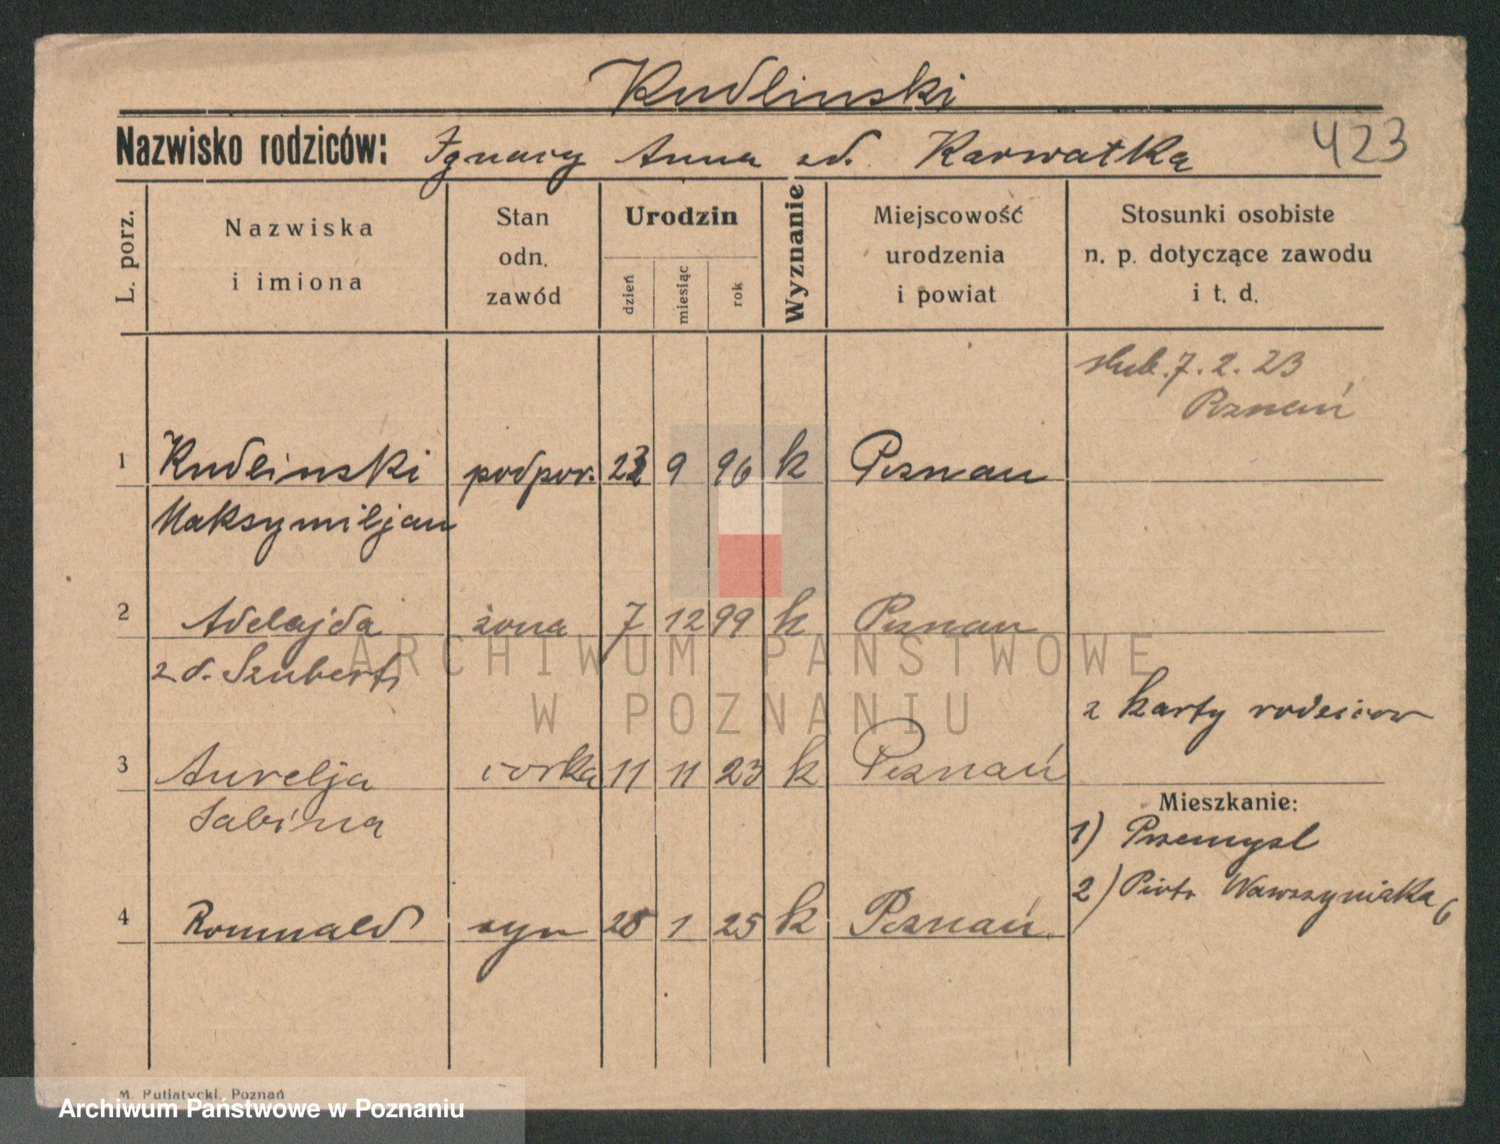 Kudlinski
Nazwisko rodziców: Ignacy Anna zd. Karwatka 423
L. porz.
Nazwiska
i imiona
Stan
odn.
zawód
Urodzin
dzień
miesiąc
rok
Wyznanie
Miejscowość
urodzenia
i powiat
Stosunki osobiste
n. p. dotyczące zawodu
i t. d.
slub. 7. 2. 23
Poznań
1 Kudlinski podpor. 9 96 k Poznan
Maksymiljan
2 Adelajda żona 7 12 99 k Poznan
z d. Szubert
z karty rodzicow
3 Aurelja corka 11 11 23 k Poznań
Sabina
Mieszkanie:
1) Przemysl
2) Piotr Wawrzyniaka 6
4 Romuald syn 28 1 25 k Poznań.
M. Putiatycki, Poznań
ARCHIWUM PAŃSTWOWE
W POZNANIU
Archiwum Państwowe w Poznaniu